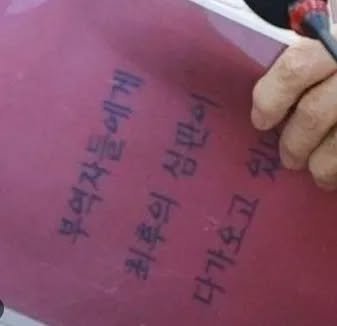 부역자들에게
최후의 심판이
다가오고